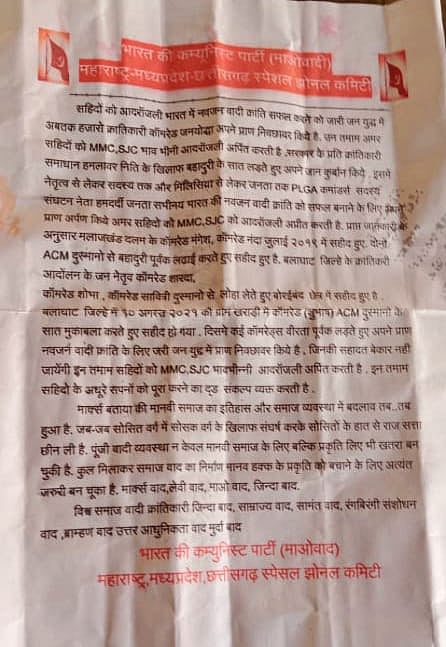 भारत की कम्युनिस्ट पार्टी (माओवादी)
महाराष्ट्र-मध्यप्रदेश-छत्तीसगढ़ स्पेशल झोनल कमिटी
सहिदों को आदराँजली भारत में नवजन वादी क्रांति सफल करने को जारी जन युद्ध में
अबतक हजारो क्रांतिकारी कॉमरेड जनयोद्धा अपने प्राण निवछावर किये है. उन तमाम अमर
सहिदों को MMC,SJC भाव भीनी आदराँजली अर्पित करती है .सरकार के प्रति क्रांतिकारी
समाधान हमलावर निति के खिलाफ बहादुरी के सात लडते हुए अपने जान कुर्बान किये . इसमे
नेतृत्व से लेकर सदस्य तक और मिलिसिया से लेकर जनता तक PLGA कमांडर्स सदस्य
संघटन नेता हमदर्दी जनता सभीमय भारत की नवजन वादी क्रांति को सफल बनाने के लिए
प्राण अर्पण किये अमर सहिदों को MMC,SJC को आदराँजली अर्पीत करती है. प्राप्त
अनुसार मलाजखंड दलम के कॉमरेड मंगेश, कॉमरेड नंदा जुलाई २०१९ में सहीद हुए. दोनो
ACM दुस्मानो से बहादुरी पूर्वक लढाई करते हुए सहीद हुए है. बलाघाट जिल्हे के क्रांतिकरी
आदोलन के जन नेतृव कॉमरेड शारदा,
कॉमरेड शोभा , कॉमरेड सावित्री दुस्मानो से लोहा लेते हुए बोरईबद छेत्र में सहीद हुए है .
बलाघाट जिल्हे में १० अगस्त २०२१ को ग्राम खराडी मे कॉमरेड (सुभाष) ACM दुस्मानो के
सात मुकाबला करते हुए सहीद हो गया . दिसमे कई कॉमरेड्स वीरता पूर्वक लड़ते हुए अपने प्राण
नवजन वादी क्रांति के लिए जरी जन युद्ध में प्राण निवछावर किये है , जिनकी सहादत बेकार नही
जायेंगी इन तमाम सहिदों को MMC,SJC भावभीन्नी आदराँजली अपित करती है . इन तमाम
सहिदों के अधूरे सपनों को पूरा करने का दृड संकल्प व्यक्त करती है .
मार्क्स बताया की मानवी समाज का इतिहास और समाज व्यवस्था में बदलाव तब..तब
हुआ है. जब-जब सोसित वर्ग में सोसक वर्ग के खिलाफ संघर्ष करके सोसितों के हात से राज सत्ता
छीन ली है. पूंजी बादी व्यवस्था न केवल मानवी समाज के लिए बल्कि प्रकृति लिए भी खतरा बन
चुकी है. कुल मिलाकर समाज वाद का निर्माण मानव हक्क के प्रकृति को बचाने के लिए अत्यंत
जरुरी बन चूका है. मार्क्स वाद,लेवी वाद, माओ वाद, जिन्दा बाद.
विश्व समाज वादी क्रांतिकारी जिन्दा बाद, साम्राज्य वाद, सामंत वाद, रंगबिरंगी संशोधन
वाद ,ब्राम्हण बाद उत्तर आधुनिकता वाद मुर्दा बाद
भारत की कम्युनिस्ट पार्टी (माओवाद)
महाराष्ट्र,मध्यप्रदेश,छत्तीसगढ़ स्पेसल झोनल कमिटी